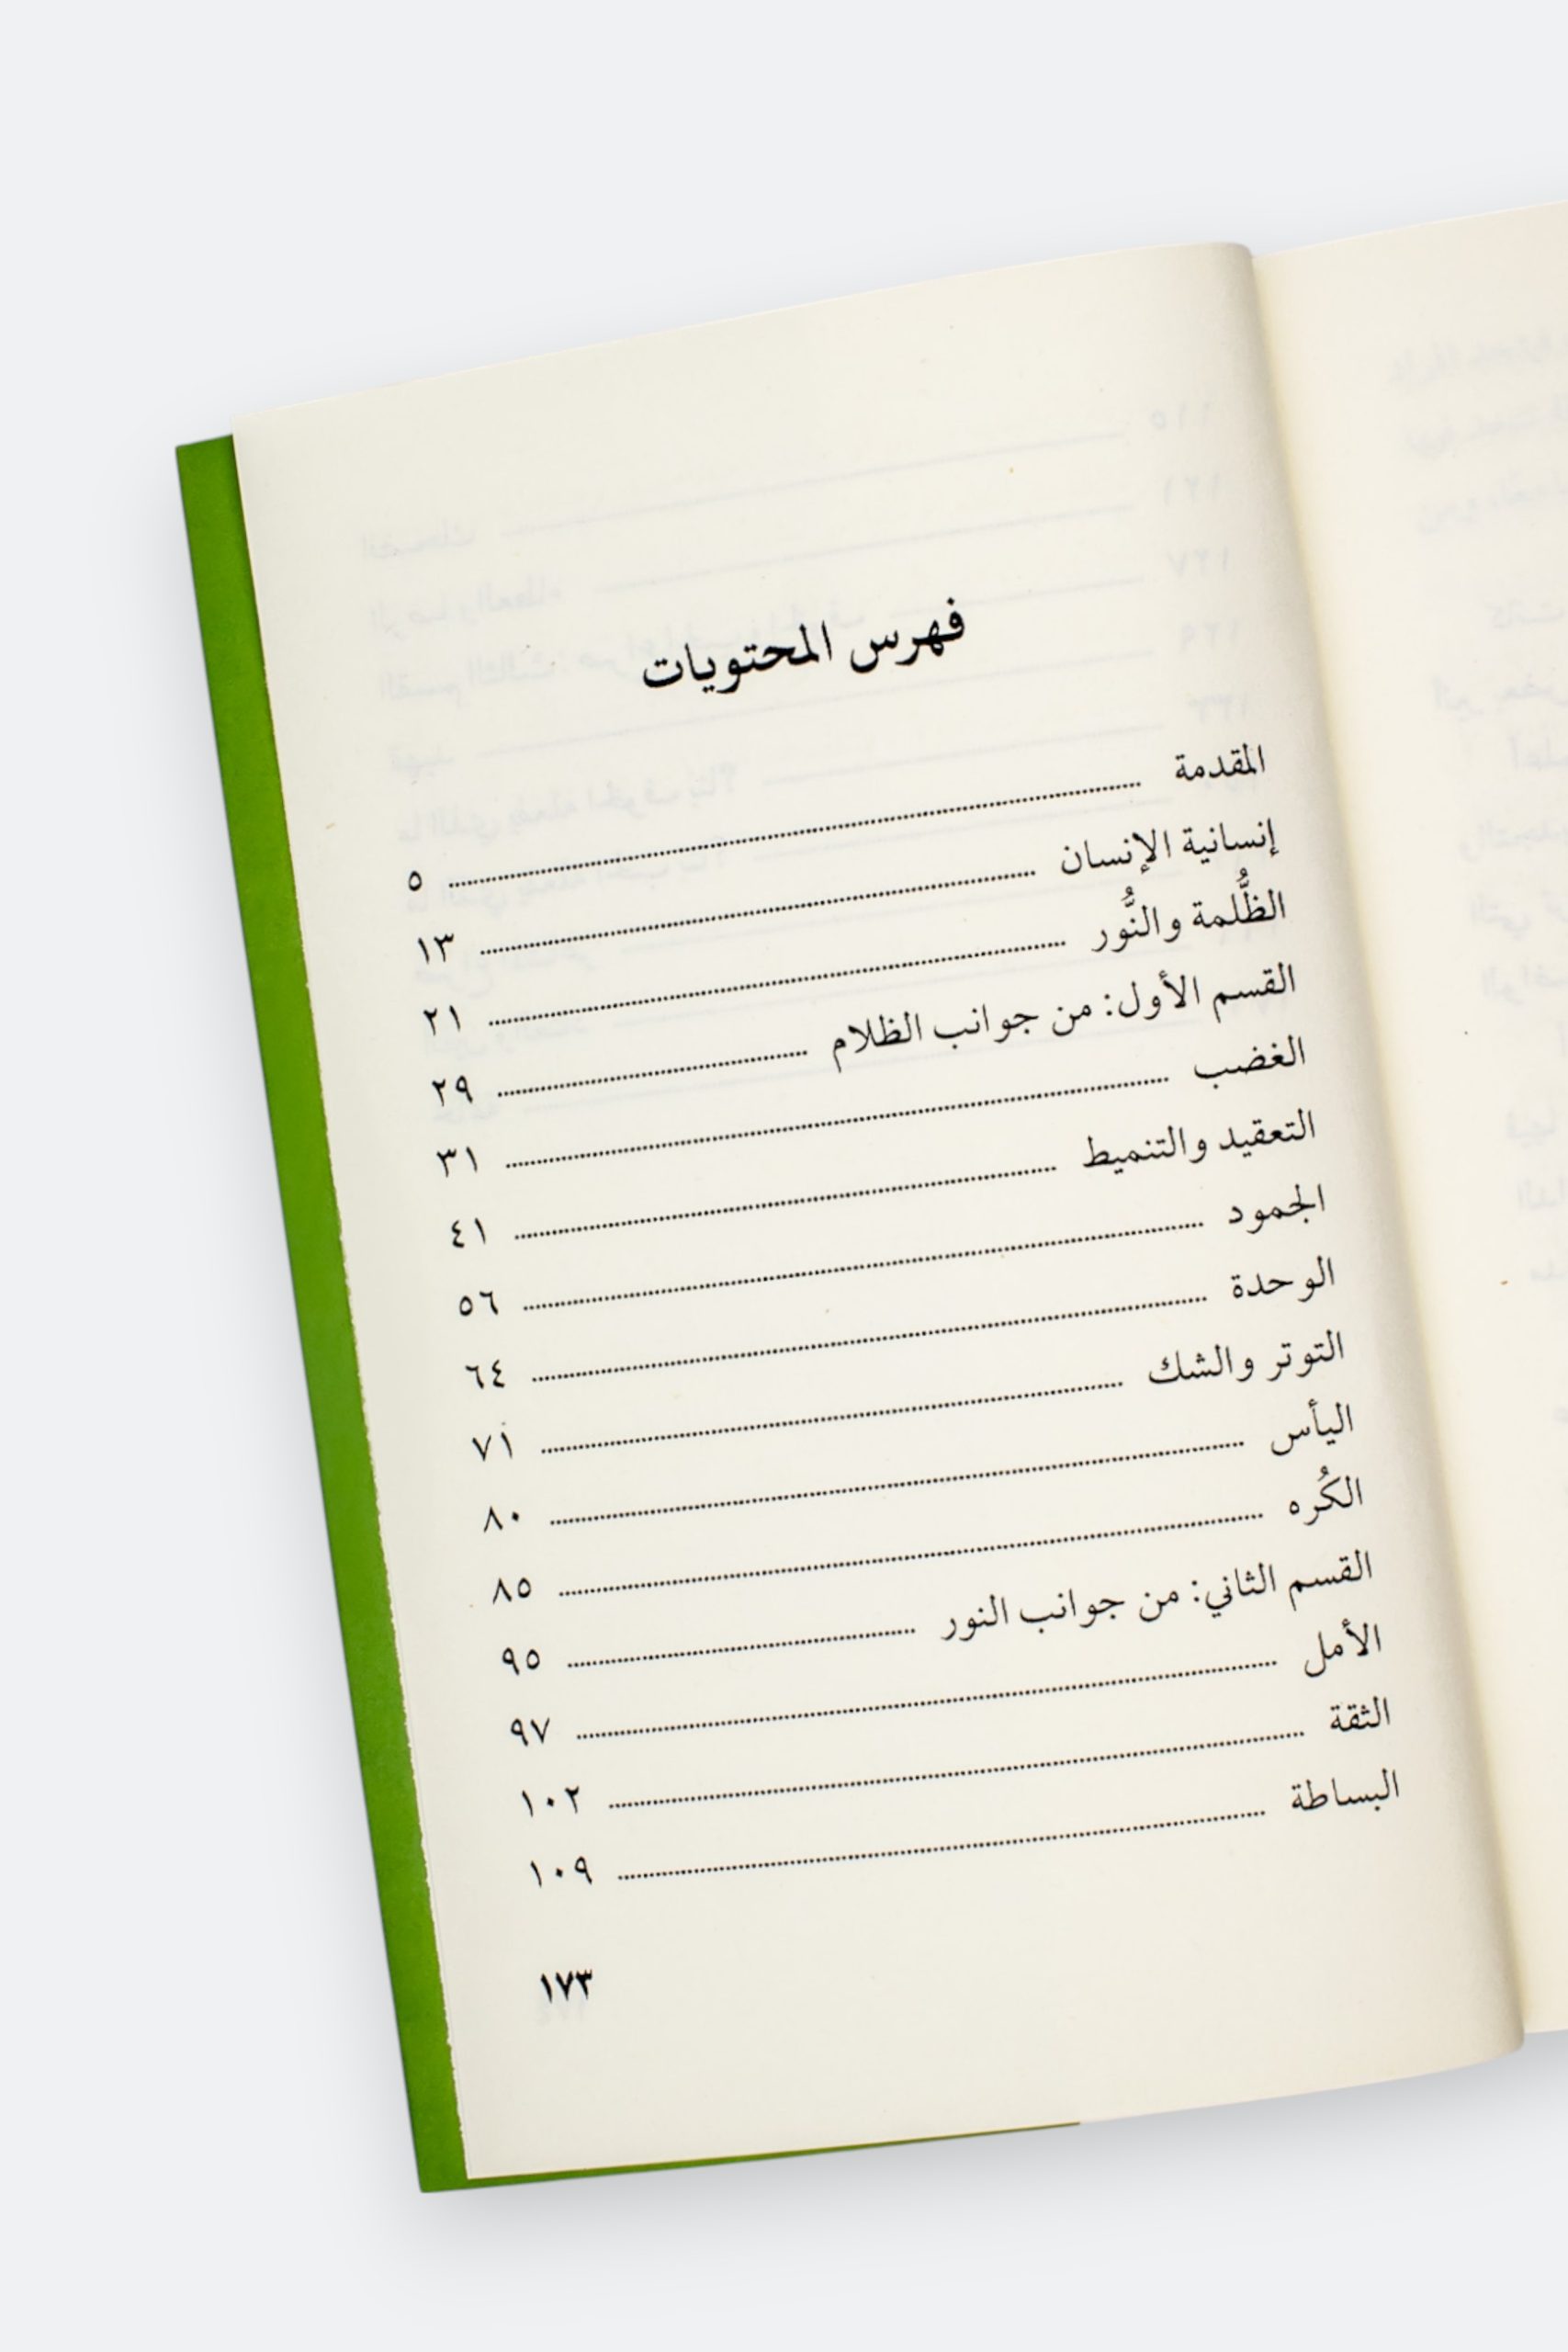 فهرس المحتويات
المقدمة ........ ٥
إنسانية الإنسان ........ ١٣
الظُّلمة والنُّور ........ ٢١
القسم الأول: من جوانب الظلام ........ ٢٩
الغضب ........ ٣١
التعقيد والتنميط ........ ٤١
الجمود ........ ٥٦
الوحدة ........ ٦٤
التوتر والشك ........ ٧١
اليأس ........ ٨٠
الكُره ........ ٨٥
القسم الثاني: من جوانب النور ........ ٩٥
الأمل ........ ٩٧
الثقة ........ ١٠٢
البساطة ........ ١٠٩
١٧٣